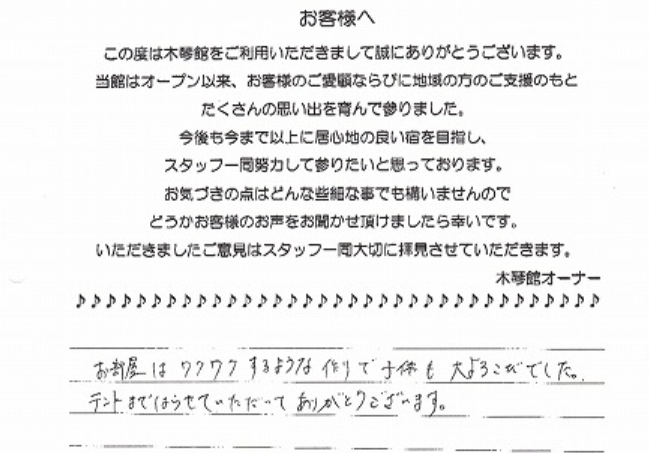 お客様へ
この度は木琴館をご利用いただきまして誠にありがとうございます。
当館はオープン以来、お客様のご愛顧ならびに地域の方のご支援のもと
たくさんの思い出を育んで参りました。
今後も今まで以上に居心地の良い宿を目指し、
スタッフ一同努力して参りたいと思っております。
お気づきの点はどんな些細な事でも構いませんので
どうかお客様のお声をお聞かせ頂けましたら幸いです。
いただきましたご意見はスタッフ一同大切に拝見させていただきます。
木琴館オーナー
♪♪♪♪♪♪♪♪♪♪♪♪♪♪♪♪♪♪♪♪♪♪♪♪♪♪♪♪♪♪♪♪♪♪♪
お部屋はワクワクするような作りで子供も大よろこびでした。
テントまではらせていただいてありがとうございます。